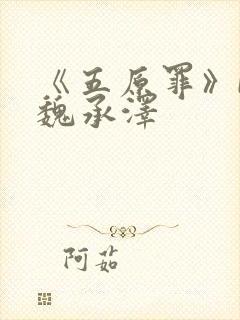 《五原罪》
魏承泽
阿茹